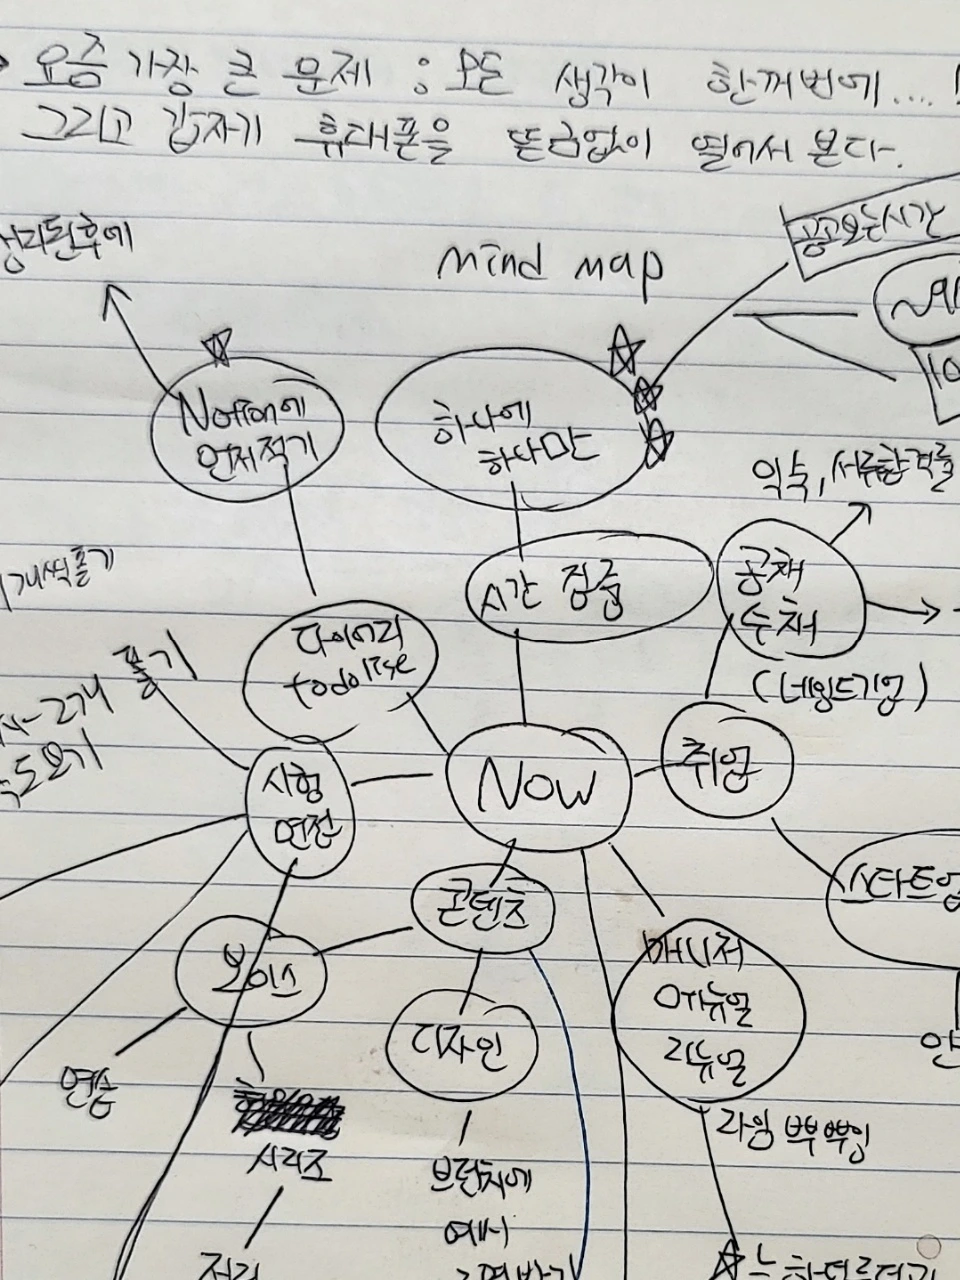 요즘 가장 큰 문제 : 모든 생각이 한꺼번에....!
그리고 갑자기 휴대폰을 뜬금없이 열어서 본다.
정리된후에
mind map
공고보는시간
Notion에
언제적기
하나에
하나만
익숙, 서류합격률
개씩풀기
시간 점출
공채
수채
다이어리
todolise
풀기
2개
(네임드기업)
시험
면접
Now
취업
콘텐츠
스타트업
보이스
매니저
메뉴얼
리뉴얼
디자인
연습
시리즈
라임
브런치에